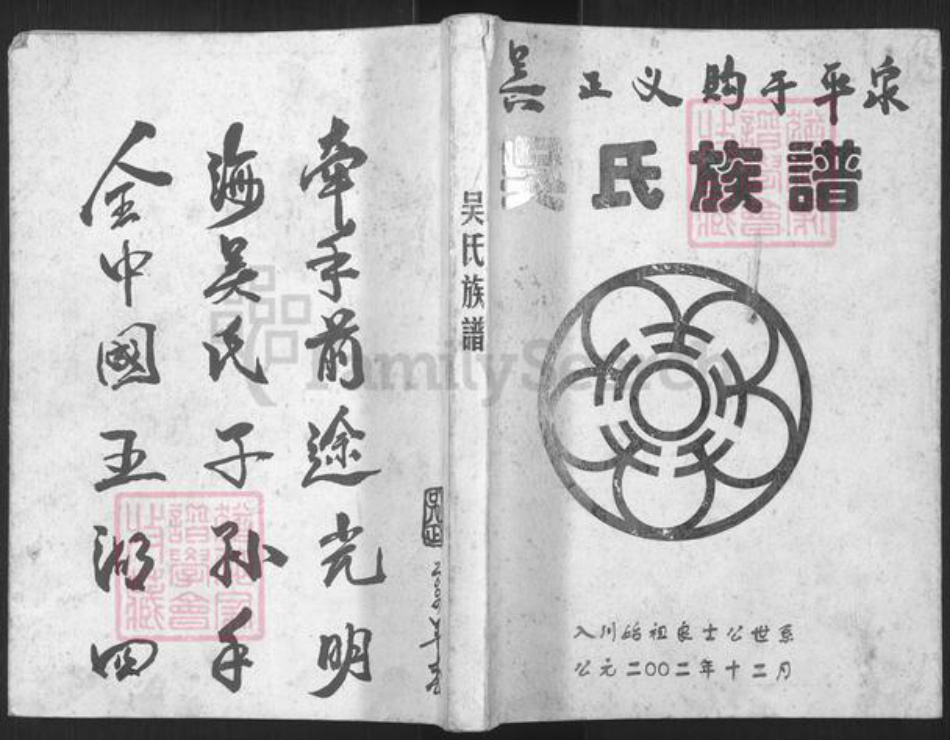 全中國五湖四
海吴氏子孙手
牵手前途光明
吴氏族譜
吴正义购于平泉
吴氏族譜
入川始祖良士公世系
公元二00二年十二月
FamilySearch